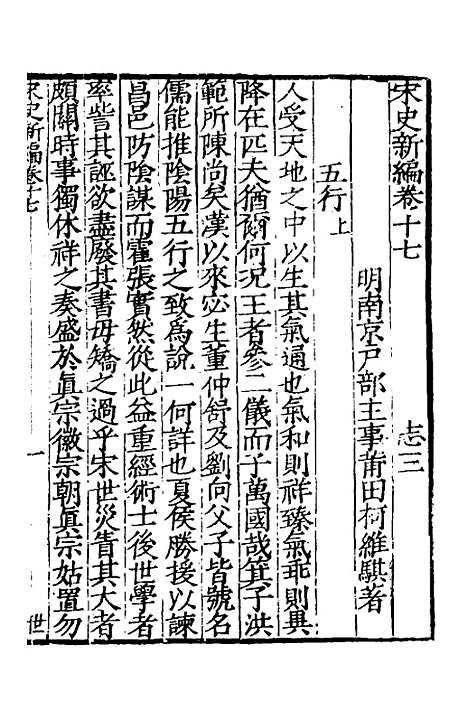 宋史新編卷十七　志三
明南京戸部主事莆田柯維騏著
五行上
人受天地之中以生其氣通也氣和則祥臻氣乖則異
降在匹夫猶爾何况王者參二儀而子萬國哉箕子洪
範所陳尚矣漢以來宓生董仲舒及劉向父子皆號名
儒能推陰陽五行之致為說一何詳也夏侯勝援以諫
昌邑防陰謀而霍張實然從此益重經術士後世學者
率訾其誣欲盡廢其書毋矯之過乎宋世災眚其大者
頗關時事獨休祥之奏盛於眞宗徽宗朝眞宗姑置勿
宋史新編卷十七　一　世